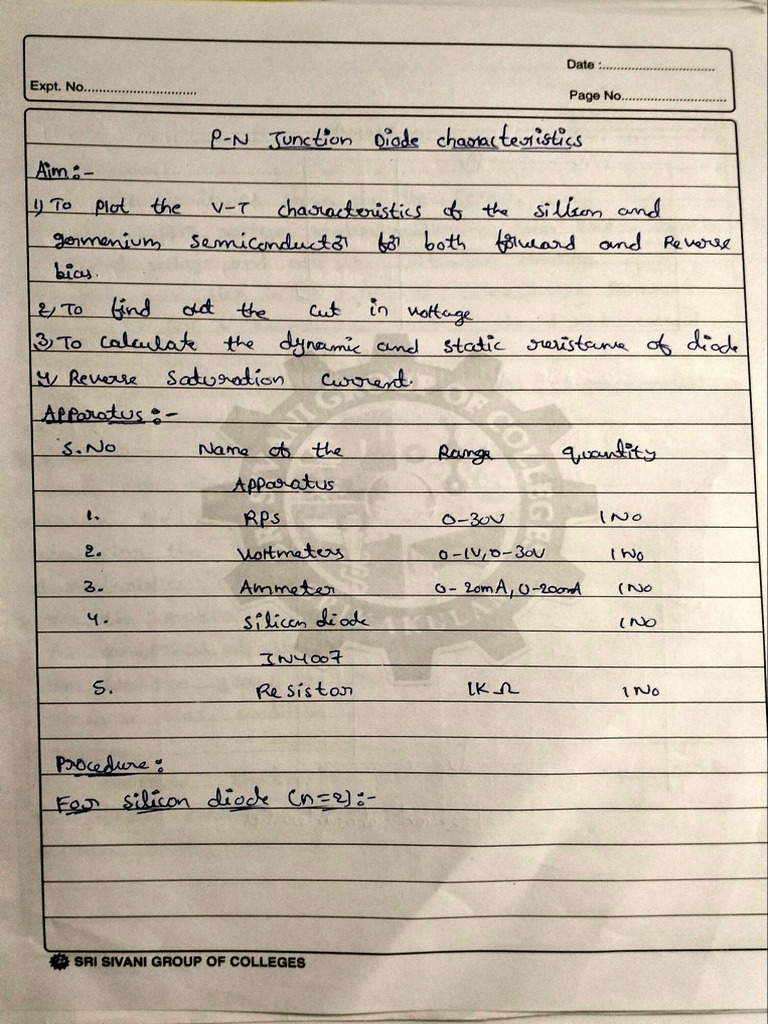 Date :
Expt. No
Page No
P-N Junction Diode characteristics
Aim :-
1) To plot the V-I characteristics of the silicon and
germenium semiconductor for both forward and Reverse
bias.
2) To find out the cut in voltage
3) To calculate the dynamic and static resistance of diode
4) Reverse saturation current.
Apparatus :-
S.No Name of the Range quantity
Apparatus
1. RPS 0-30V 1 No
2. Voltmeters 0-1V, 0-30V 1 No
3. Ammeter 0-20mA, 0-200mA 1 No
4. silicon diode 1 No
IN4007
5. Resistor 1K Ω 1 No
Procedure :
For silicon diode (n=2) :-
SRI SIVANI GROUP OF COLLEGES